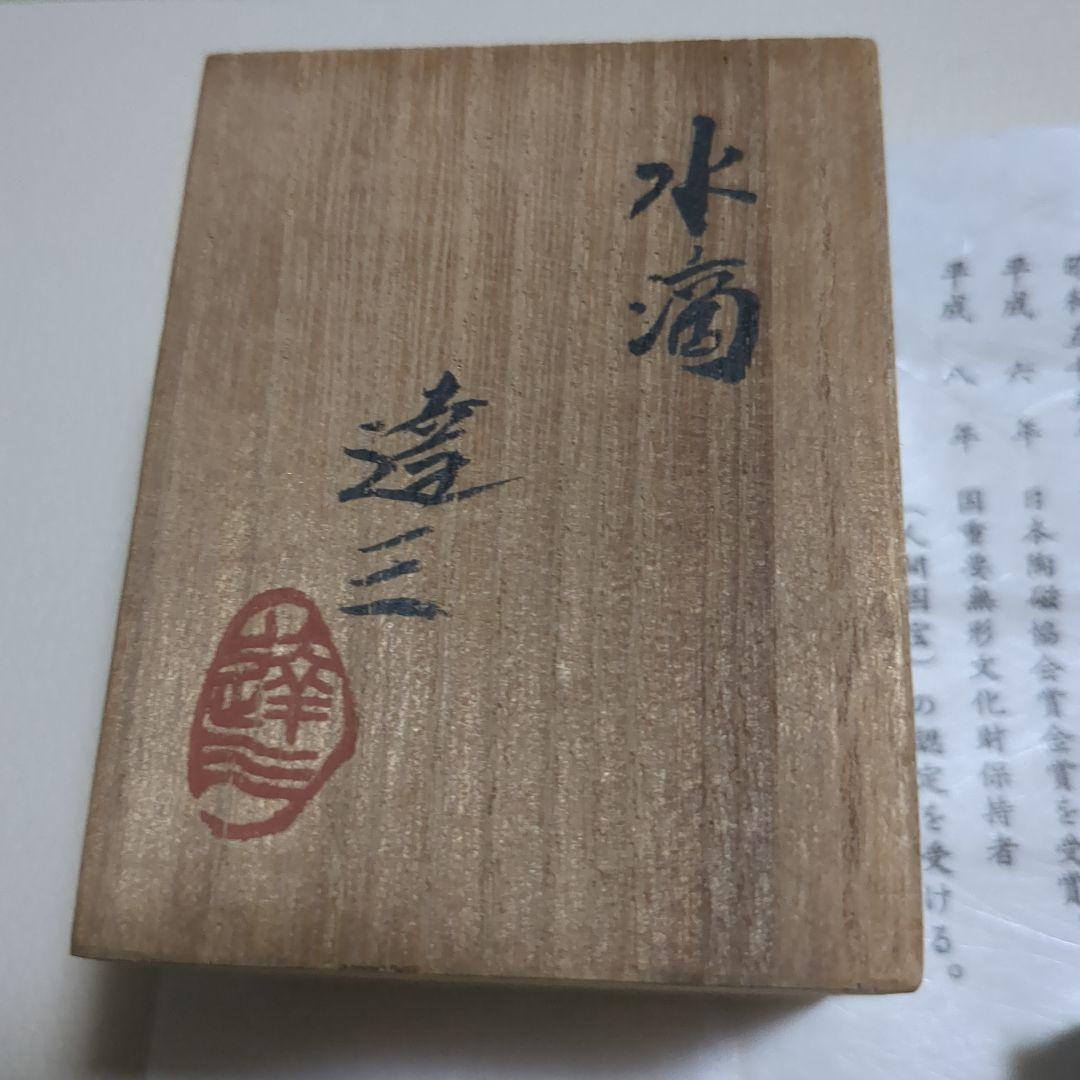 水滴
達三
達三
平成 六 年 日本陶磁協会賞金賞を受賞
平成 八 年 国重要無形文化財保持者
（人間国宝）の認定を受ける。